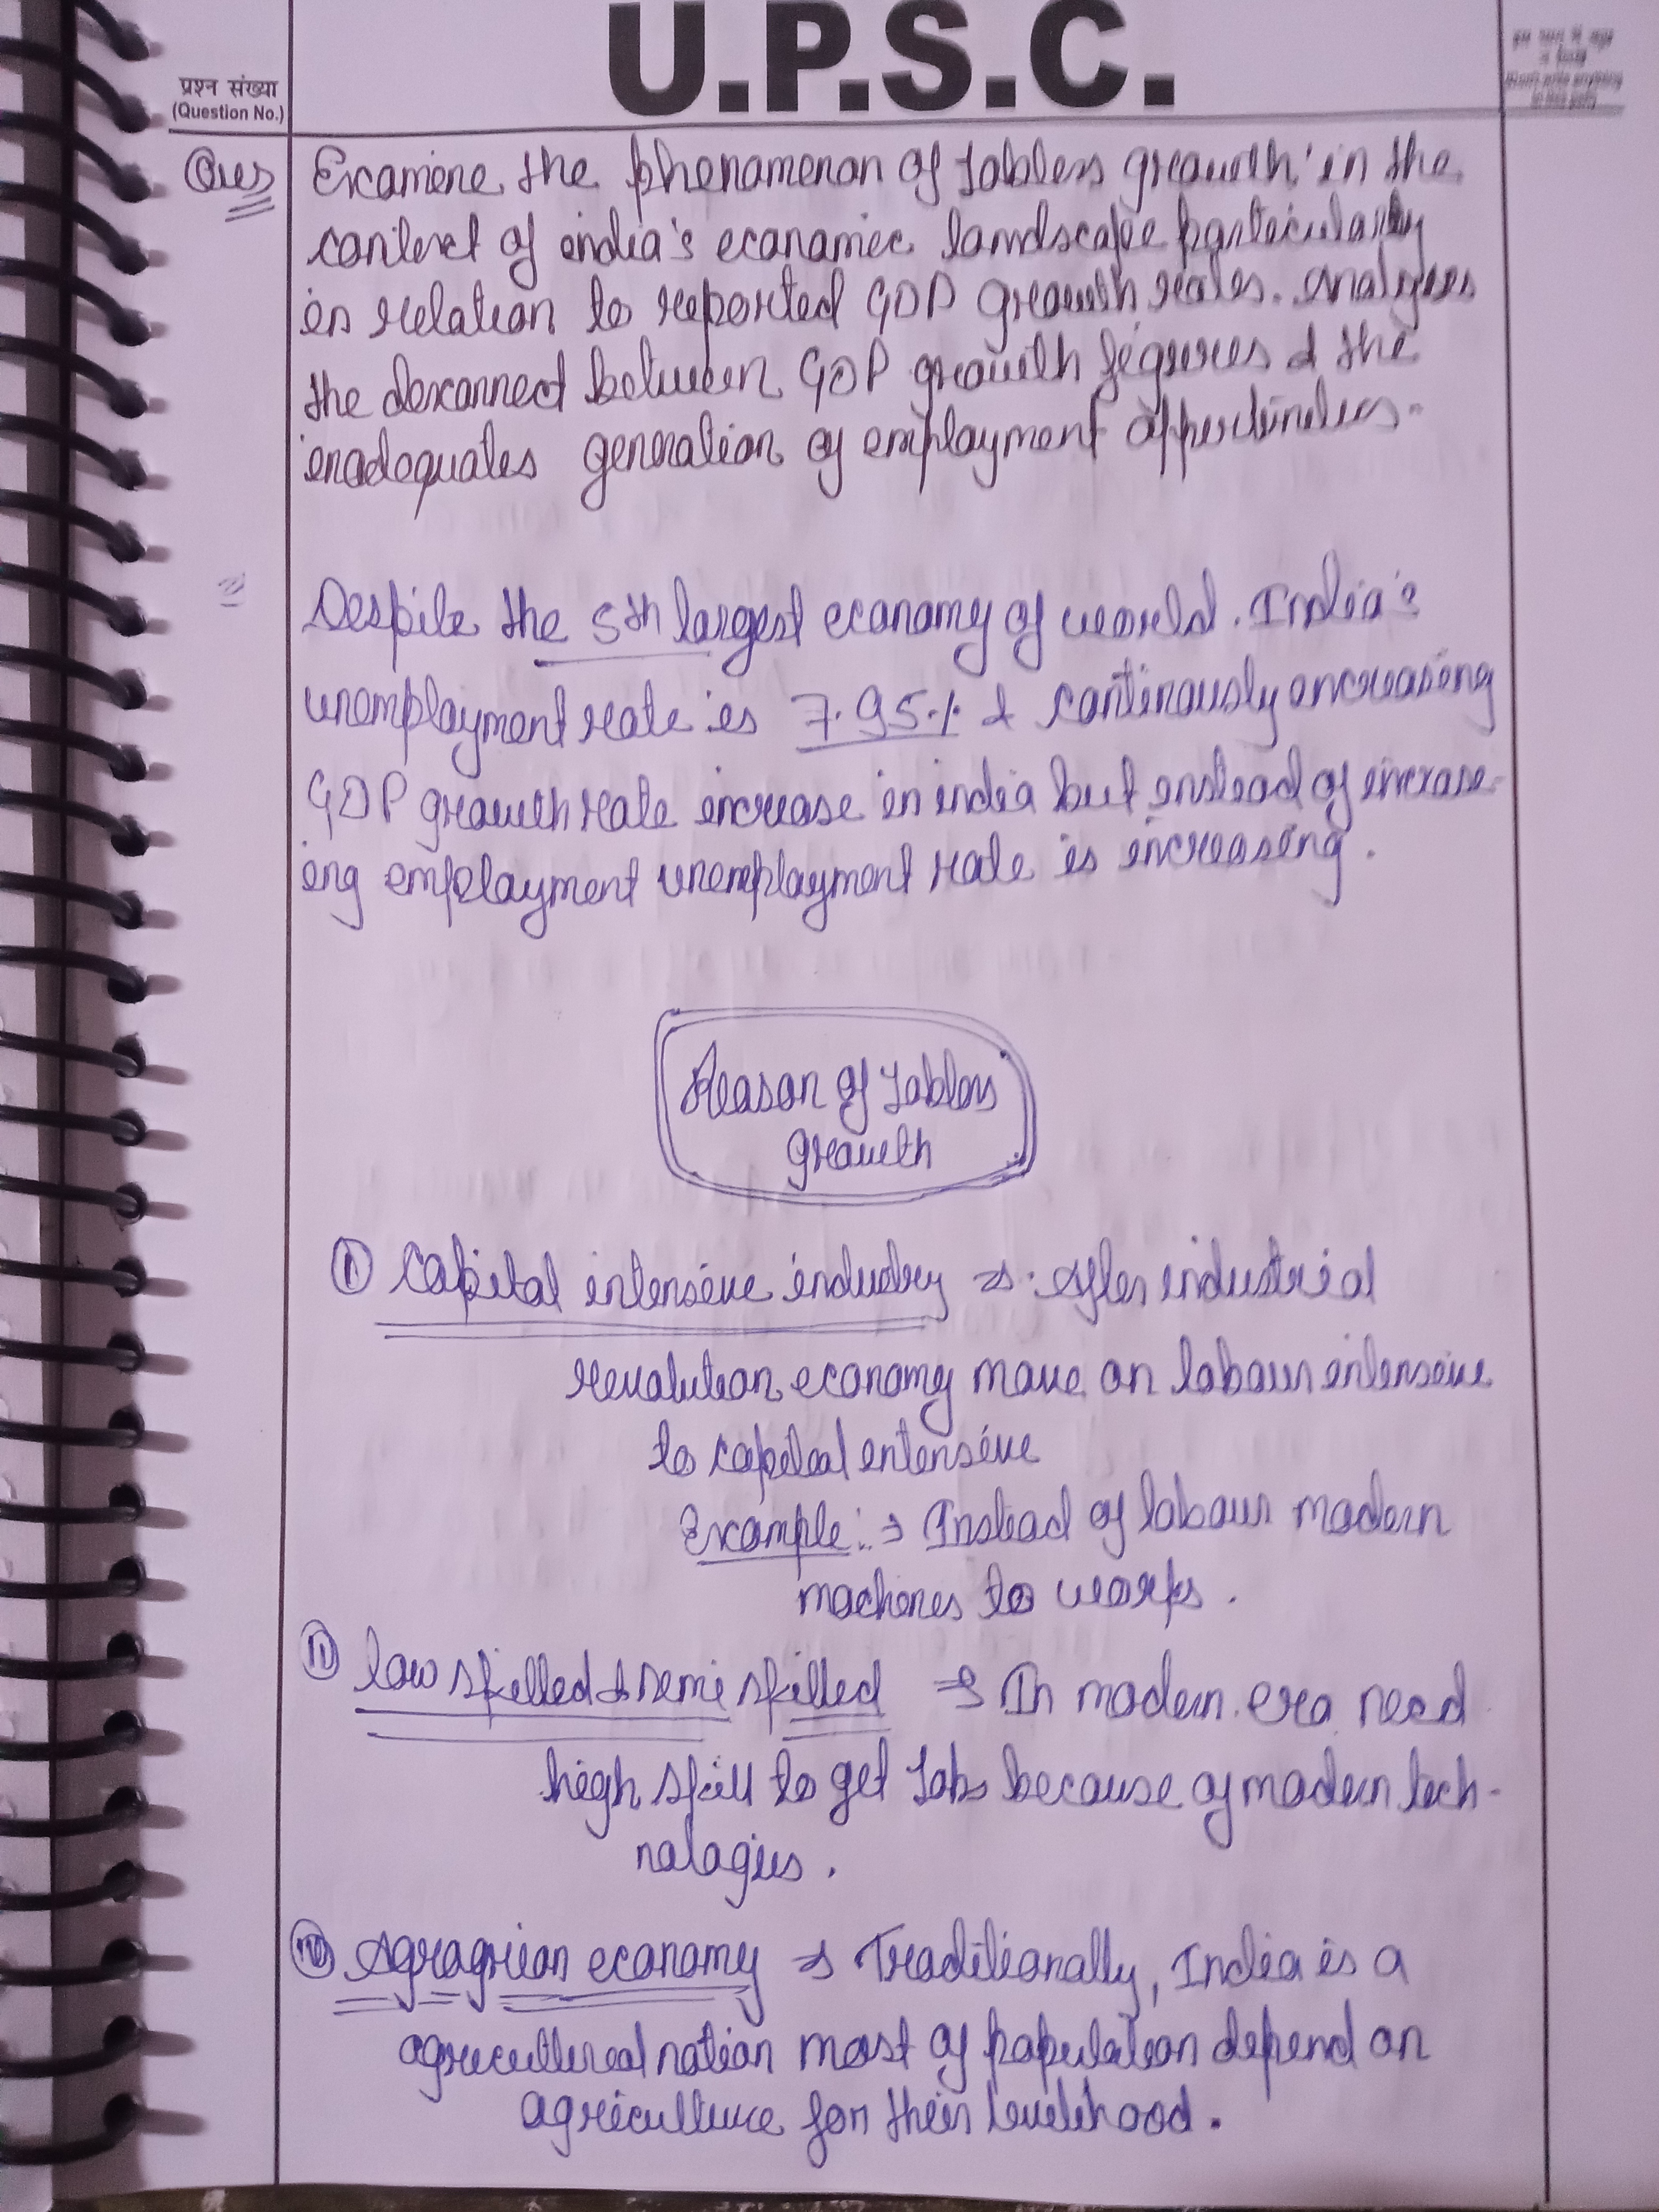 U.P.S.C.
प्रश्न संख्या
(Question No.)
Ques
Examine the phenomenon of Jobless growth' in the
context of india's economic landscape particularly
in relation to reported GDP growth rates. analyses
the disconnect between GDP growth figures & the
inadequates generation of employment opportunities.
Despite the 5th largest economy of world. India's
unemployment rate is 7.95% & continously increasing
GDP growth rate increase in india but instead of increase-
ing employment unemployment rate is increasing.
Reason of Jobless
growth
① Capital intensive industry ⇒ After industrial
revolution economy move on labour intensive
to capital intensive
Example: ⇒ Instead of labour modern
machines to works.
⑪ low skilled & semi skilled ⇒ In modern era need
high skill to get Jobs because of modern tech-
nologies.
Agragrian economy ⇒ Traditionally, India is a
agricultureal nation most of population depend on
agriculture for their livelihood.